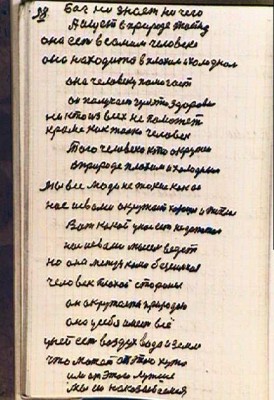 Бог ни знает ни чего
Пануит в природе
она есть в самом человеке
она находится в плохом и холодном
она человеку помогает
он получает здоровье
ни кто из всех не поможет
кроме как только человек
Того человека кто окружон
природе плохим и холодным
Мы все люди не такие как он
нас и вами окружает хорошо и тепло
Вот какой у нас есть недостаток
ни вами мысли ведет
но она между нами болеится
человек плохой стороны
он окружается природою
она у тебя имеет всё
у ней есть воздух вода и земля
что может от этого хуже
или от Этого лучше
мы им наказываемся